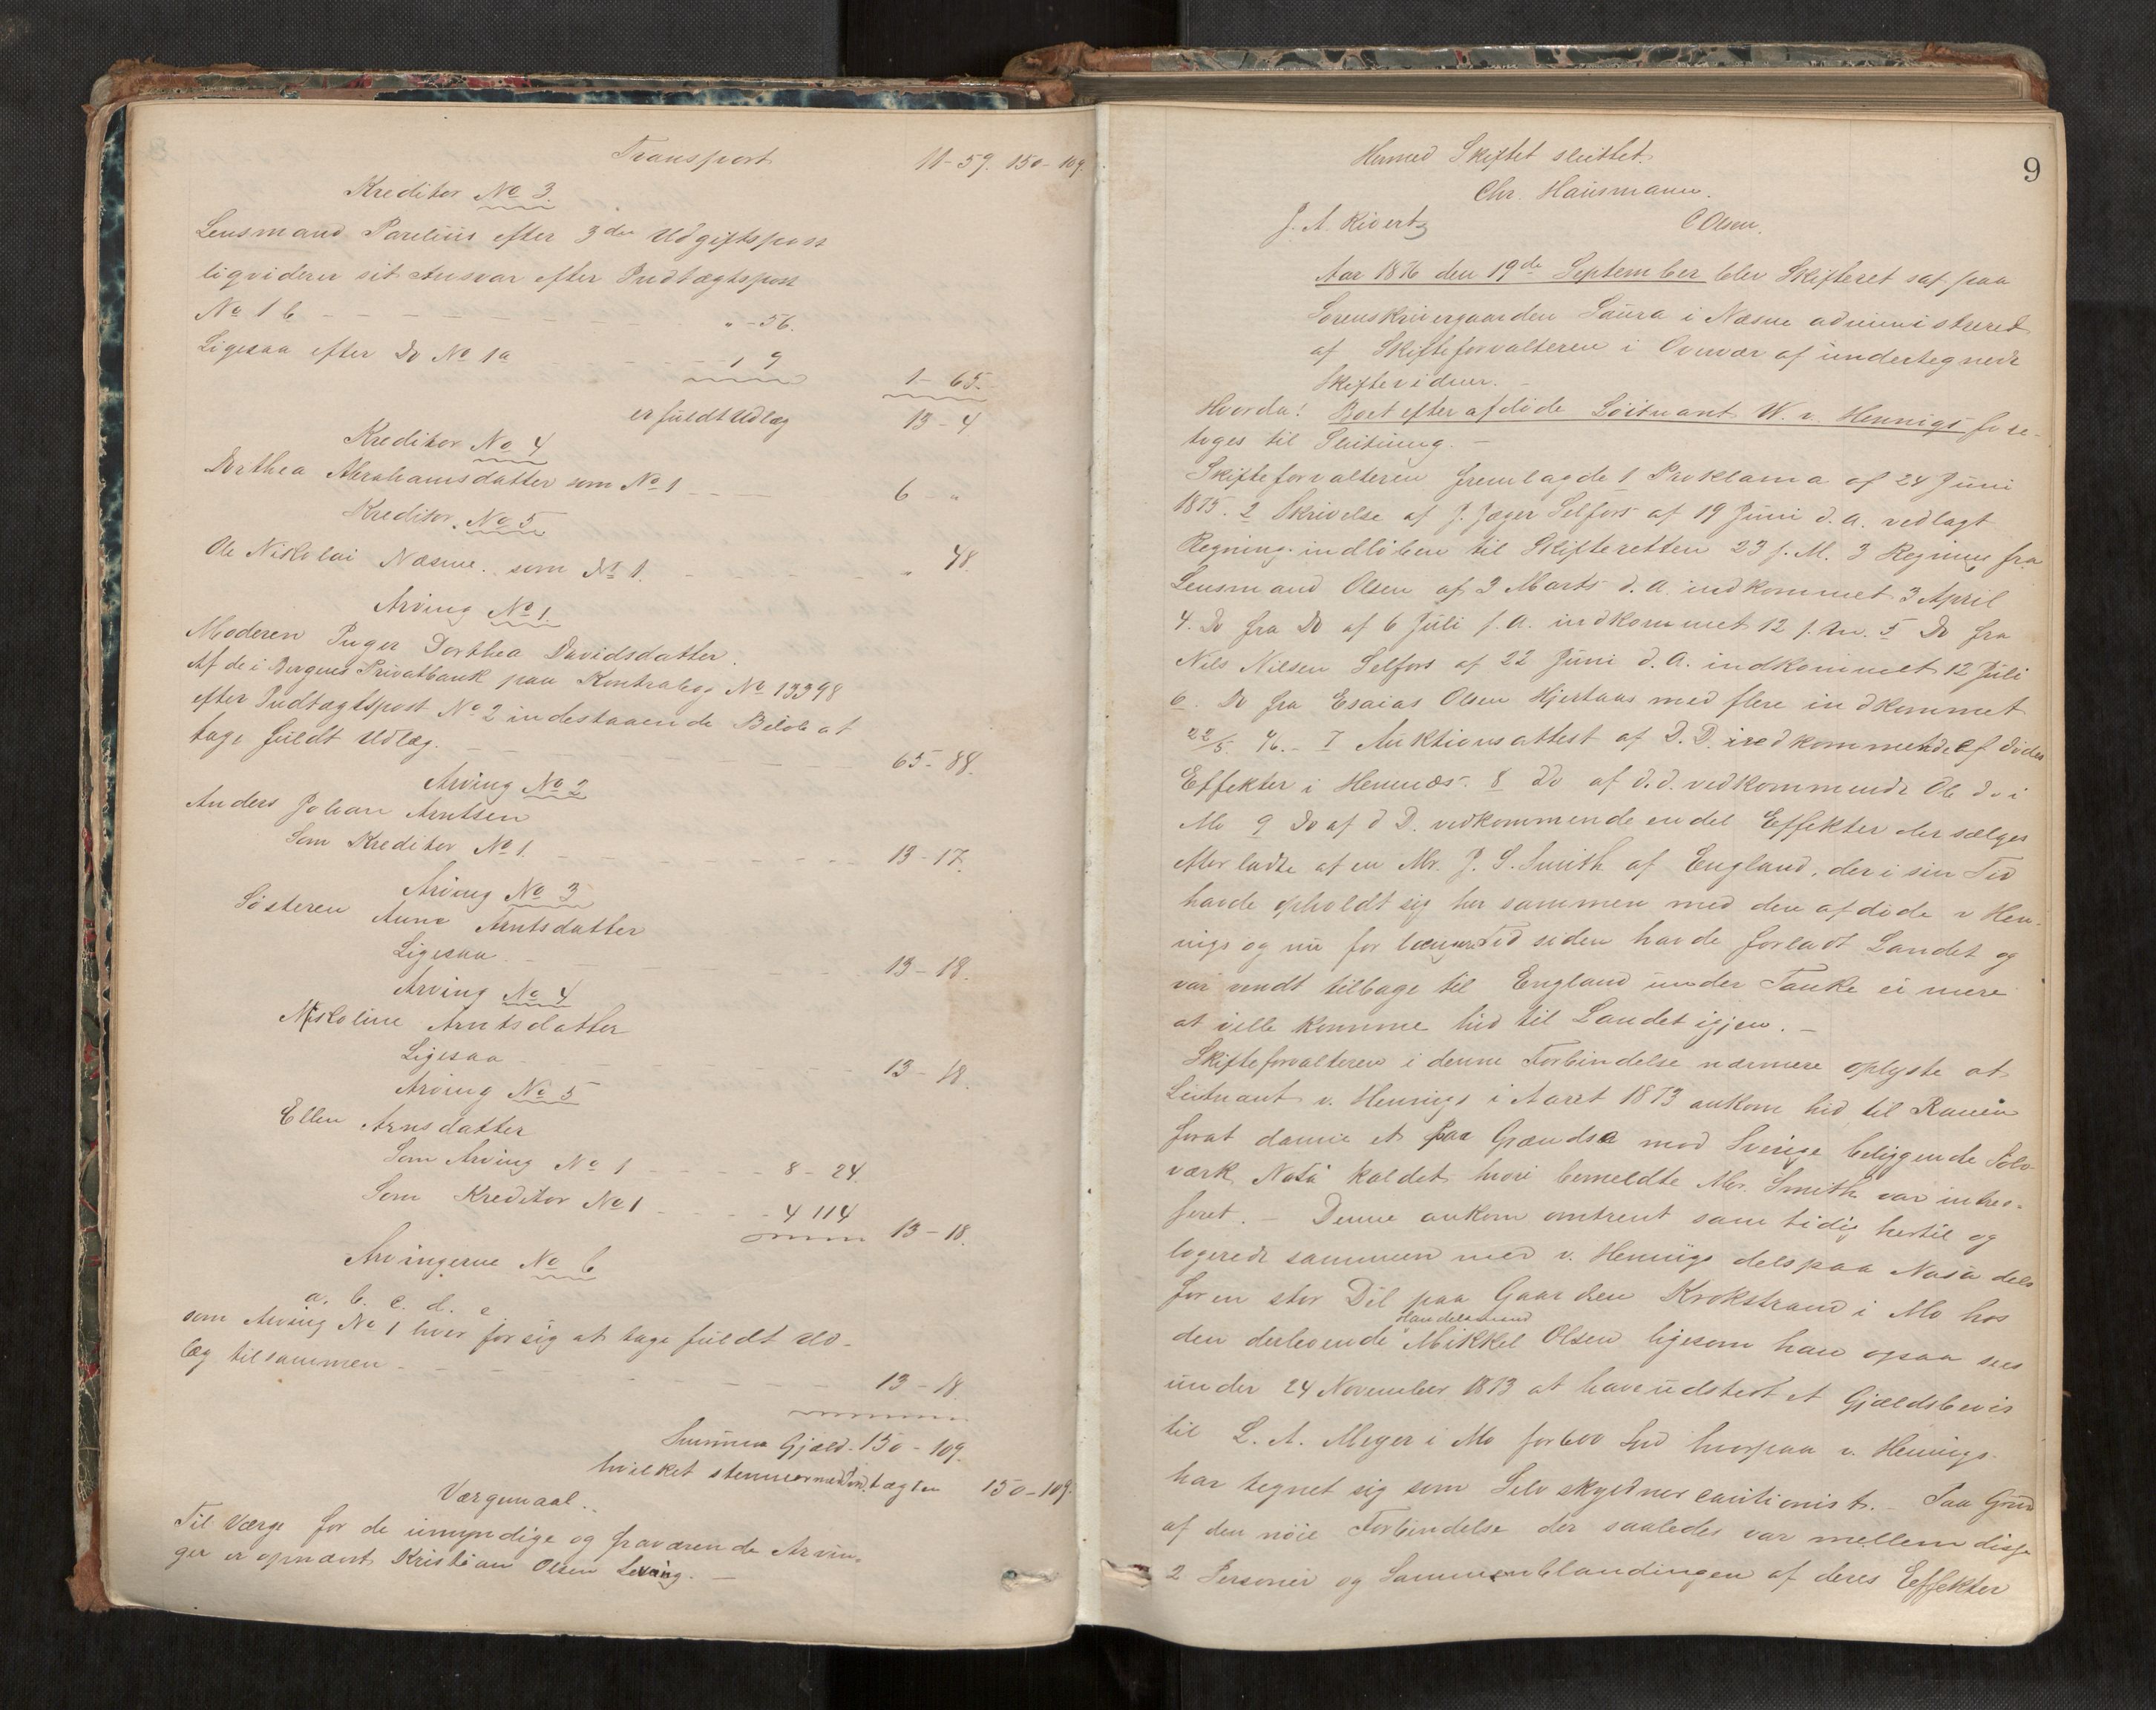 Transport 11-59. 150-109.
Kreditor No 3.
Lensmand Parelius efter 3die Udgiftspost
ligviderer sit Ansvar efter Indtægtspost
No 1 b - - - - - " - 56.
Ligesaa efter Do No 1a - - - 1 9
1- 65.
er fuldt Udlæg 13 - 4
Kreditor No 4
Dorthea Abrahamsdatter som No 1 - - - 6 - "
Kreditor No 5
Ole Nikolai Næsne. som No 1. - - " 48.
Arving No 1.
Moderen Inger Dorthea Davidsdatter.
Af de i Bergens Privatbank paa Kontrabog No 13398
efter Indtægtspost No 2 indestaaende Beløb at
tage fuldt Udlæg. - - - 65- 88.
Arving No 2
Anders Johan Arntsen
Som Kreditor No 1. - - - 13- 17.
Arving No 3
Søsteren Anne Arntsdatter
Ligesaa. - - - 13- 18.
Arving No 4
Nikoline Arntsdatter
Ligesaa - - - 13- 18.
Arving No 5
Ellen Arnsdatter
Som Arving No 1 - - - 8- 24.
Som Kreditor No 1 - - - 4 114
13- 18.
Arvingerne No 6
a. b. c. d. e
som Arving No 1 hver for sig at tage fuldt Ud-
læg tilsammen - - - 13- 18.
Summa Gjæld. 150 - 109.
hvilket stemmer med Indtægten 150-109.
Værgemaal.
Til Værge for de umyndige og fraværende Arvin-
ger er opnævnt Kristian Olsen Leving. -
9
Hermed Skiftet sluttet.
Chr. Hausmann.
J. A. Kivertz C Olsen.
Aar 1876 den 19de September blev Skifteret sat paa
Sorenskrivergaarden Saura i Næsne administreret
af Skifteforvalteren i Overvær af undertegnede
Skiftevidner. -
Hvorda! Boet efter afdøde Løitnant W. v. Hennigs fore-
toges til Slutning. -
Skifteforvalteren fremlagde 1 Proklama af 24 Juni
1875. 2 Skrivelse af J. Jæger Selfors af 19 Juni d. A. vedlagt
Regning indløben til Skifteretten 23 s. M. 3 Regning fra
Lensmand Olsen af 3 Marts d. A. indkommet 3 April
4. Do fra Do af 6 Juli f. A. indkommet 12 s. M. 5 Do fra
Nils Nilsen Selfors af 22 Juni d. A. indkommet 12 Juli
6. Do fra Esaias Olsen Hjertaas med flere indkommet
22/5 76. - 7 Auktionsattest af D. D. vedkommende Afdødes
Effekter i Hemnæs. 8 Do af d. d. vedkommende Do do i
Mo 9 Do af d D. vedkommende endel Effekter der sælges
efterladte af en Mr. J. S. Smith af England, der i sin Tid
havde opholdt sig her sammen med den afdøde v Hen-
nigs og nu for længere Tid siden havde forladt Landet og
var vendt tilbage til England under Tanke ei mere
at ville komme hid til Landet igjen. -
Skifteforvalteren i denne Forbindelse nærmere oplyste at
Løitnant v. Hennigs i Aaret 1873 ankom hid til Ranen
forat danne et paa Grændsa mod Sverige beliggende Sølv-
værk Nasa kaldet hvori bemeldte Mr. Smith var intres-
seret. - Denne ankom omtrent samtidig hertil og
logerede sammen med v. Hennigs dels paa Nasa dels
for en stor Del paa Gaarden Krokstrand i Mo hos
den derboende Handelsmand Mikkel Olsen ligesom han ogsaa sees
under 24 November 1873 at have udstedt et Gjældsbevis
til L. A. Meyer i Mo for 600 Spd hvorpaa v. Hennigs
har tegnet sig som Selvskyldnercautionist. - Paa Grund
af den nøie Forbindelse der saaledes var mellem disse
2 Personer og Sammenblandingen af deres Effekter